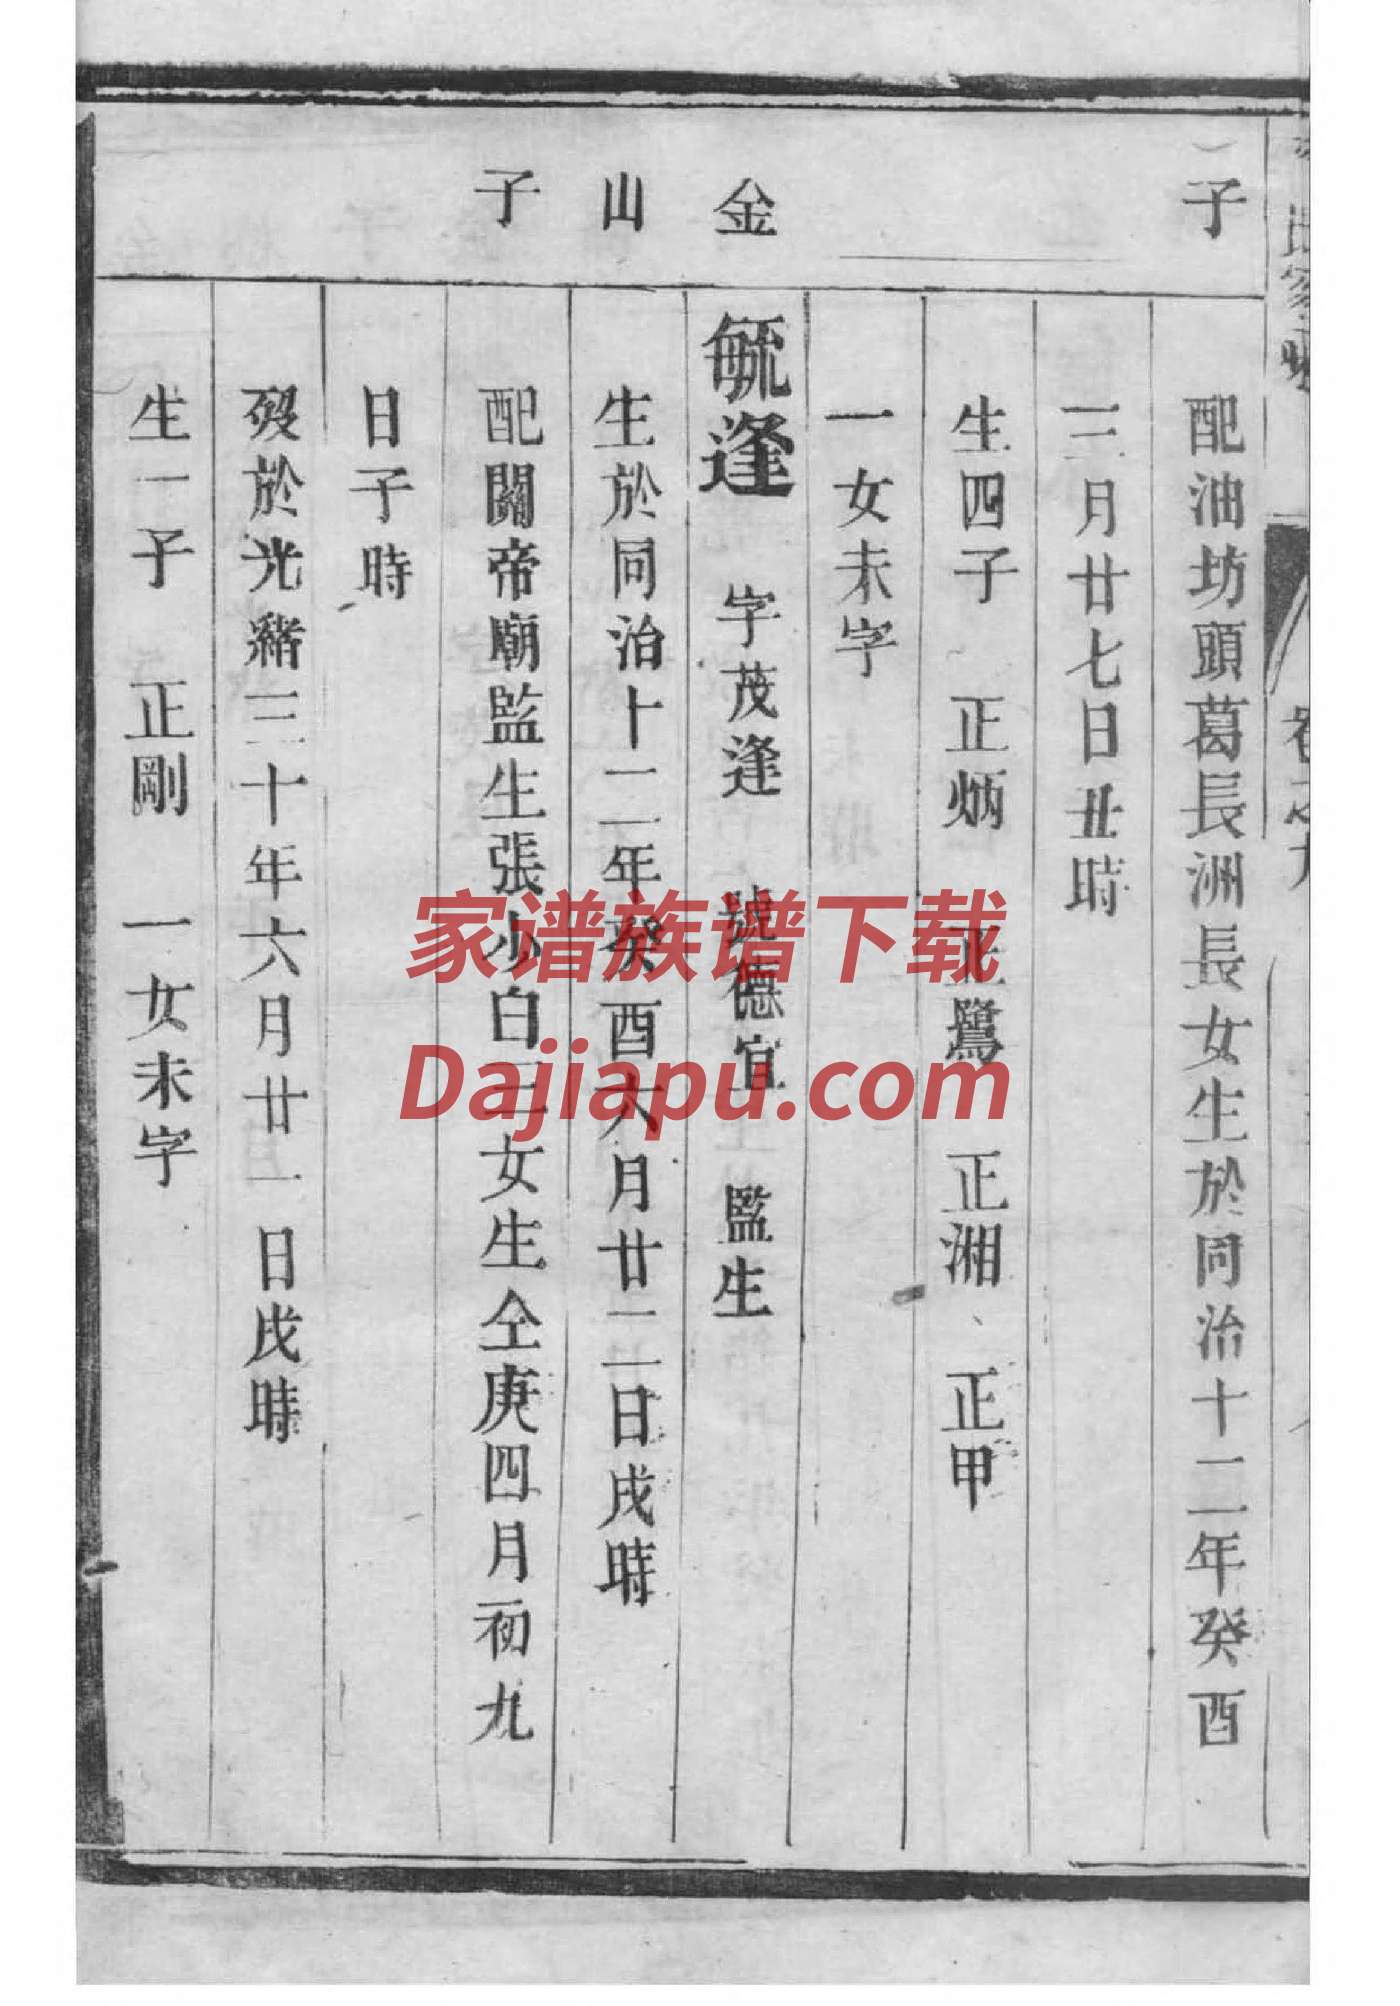 子
配油坊頭葛長洲長女生於同治十二年癸酉
三月廿七日丑時
生四子 正炳 正鷺 正湘 正甲
一女未字
金
毓逢 字茂逢 號德宜 監生
山
生於同治十二年癸酉六月廿二日戌時
子
配關帝廟監生張少白三女生仝庚四月初九
日子時
歿於光緒三十年六月廿一日戌時
生一子 正剛 一女未字
家谱族谱下载
Dajiapu.com